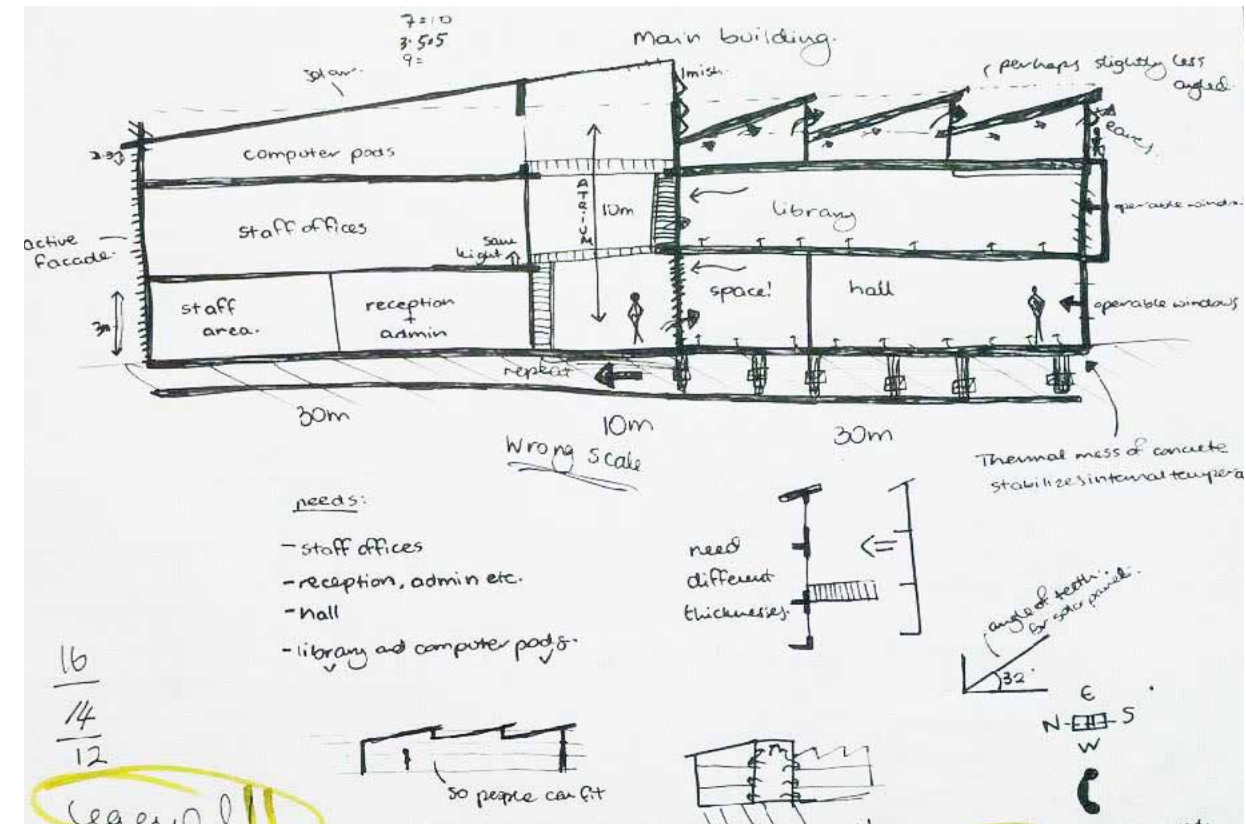 7=10
3.5=5
9=
Main building.
solar.
1mish.
(perhaps slightly less
angled.
eaves.
computer pods
ATRIUM
10m
library
operable windo
staff offices
same
height
active
facade
3m
staff
area.
reception
+
admin
space!
hall
operable windows
repeat
30m
10m
30m
Wrong scale
Thermal mass of concrete
stabilizes internal tempera
needs:
- staff offices
- reception, admin etc.
- hall
- library and computer pods.
need
different
thicknesses.
angle of teeth
for solar panel.
32°
E
N S
W
16
14
12
so people can fit